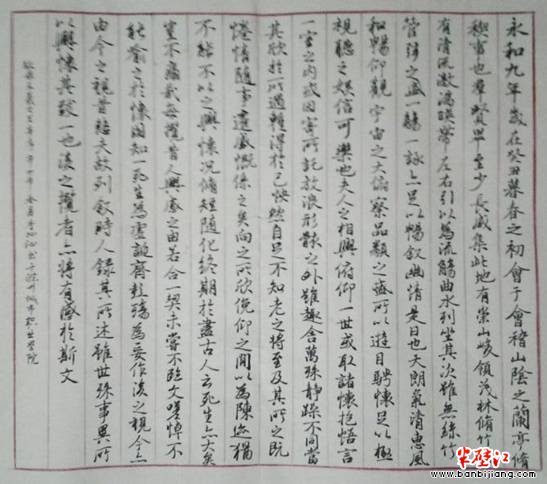 永和九年歲在癸丑暮春之初會于會稽山陰之蘭亭脩
稧事也羣賢畢至少長咸集此地有崇山峻領茂林脩竹
有清流激湍暎帶左右引以為流觴曲水列坐其次雖無絲竹
管弦之盛一觴一詠亦足以暢敘幽情是日也天朗氣清惠風
和暢仰觀宇宙之大俯察品類之盛所以遊目騁懷足以極
視聽之娛信可樂也夫人之相與俯仰一世或取諸懷抱悟言
一室之內或因寄所託放浪形骸之外雖趣舍萬殊靜躁不同當
其欣於所遇暫得於己快然自足不知老之將至及其所之既
惓情隨事遷感慨係之矣向之所欣俛仰之間以為陳迹猶
不能不以之興懷況脩短隨化終期於盡古人云死生亦大矣
豈不痛哉每攬昔人興感之由若合一契未嘗不臨文嗟悼不
能喻之於懷固知一死生為虛誕齊彭殤為妄作後之視今亦
由今之視昔悲夫故列敘時人錄其所述雖世殊事異所
以興懷其致一也後之攬者亦將有感於斯文
城市职业学院
半壁江
www.banbijiang.com